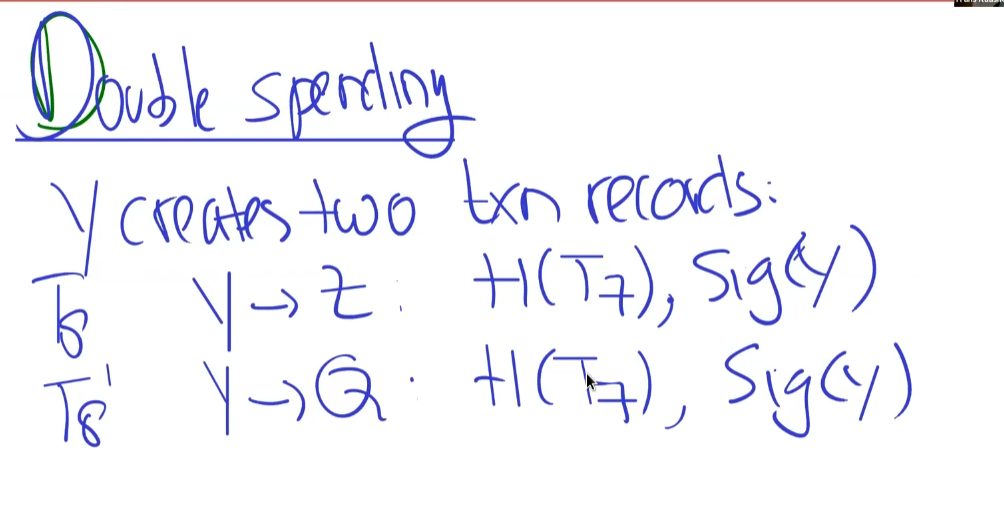 Double spending
Y creates two txn records:
T8 Y → Z : H(T7), Sig(Y)
T8' Y → Q : H(T7), Sig(Y)